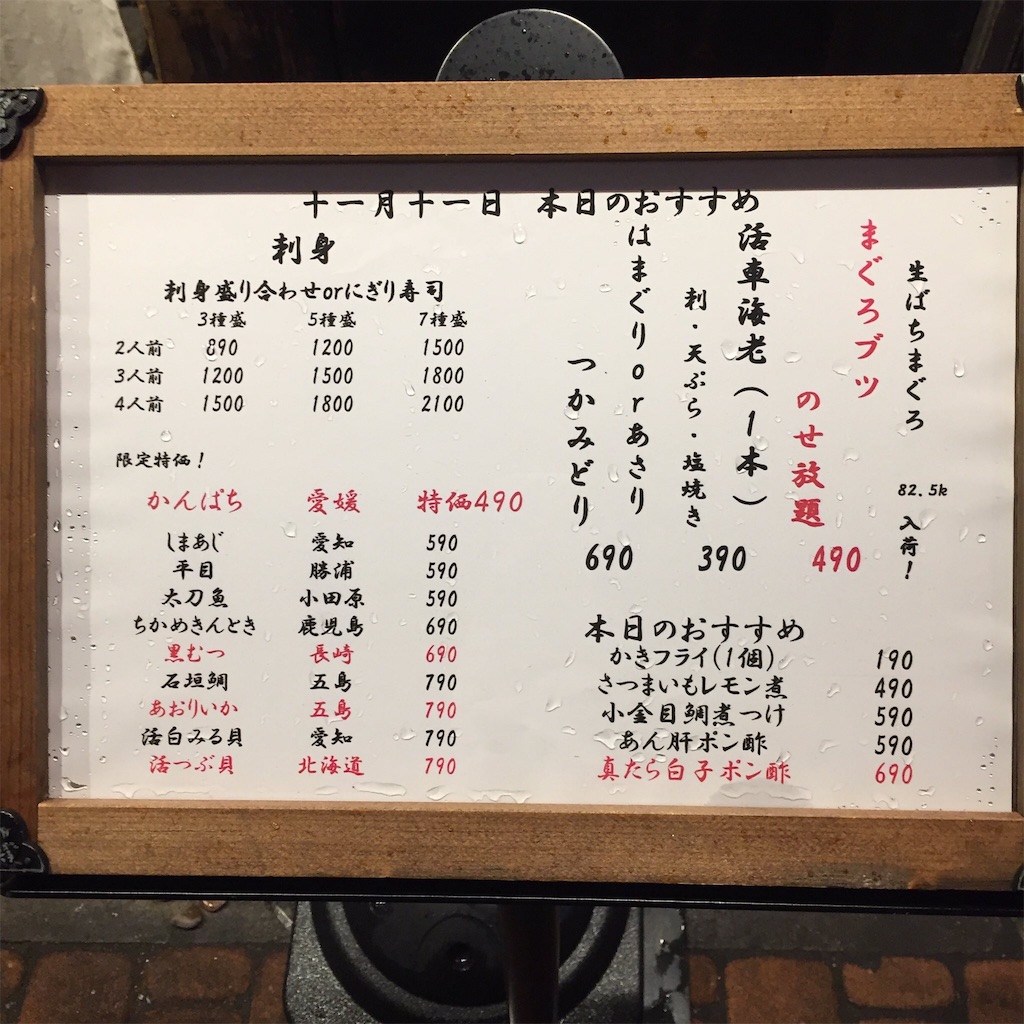 十一月十一日　本日のおすすめ
刺身
刺身盛り合わせorにぎり寿司
3種盛　5種盛　7種盛
2人前　890　1200　1500
3人前　1200　1500　1800
4人前　1500　1800　2100
限定特価！
かんぱち　愛媛　特価490
しまあじ　愛知　590
平目　勝浦　590
太刀魚　小田原　590
ちかめきんとき　鹿児島　690
黒むつ　長崎　690
石垣鯛　五島　790
あおりいか　五島　790
活白みる貝　愛知　790
活つぶ貝　北海道　790
生ばちまぐろ
82.5k
入荷！
まぐろブツ
のせ放題
490
活車海老（1本）
刺・天ぷら・塩焼き
390
はまぐりorあさり
つかみどり
690
本日のおすすめ
かきフライ(1個)　190
さつまいもレモン煮　490
小金目鯛煮つけ　590
あん肝ポン酢　590
真たら白子ポン酢　690